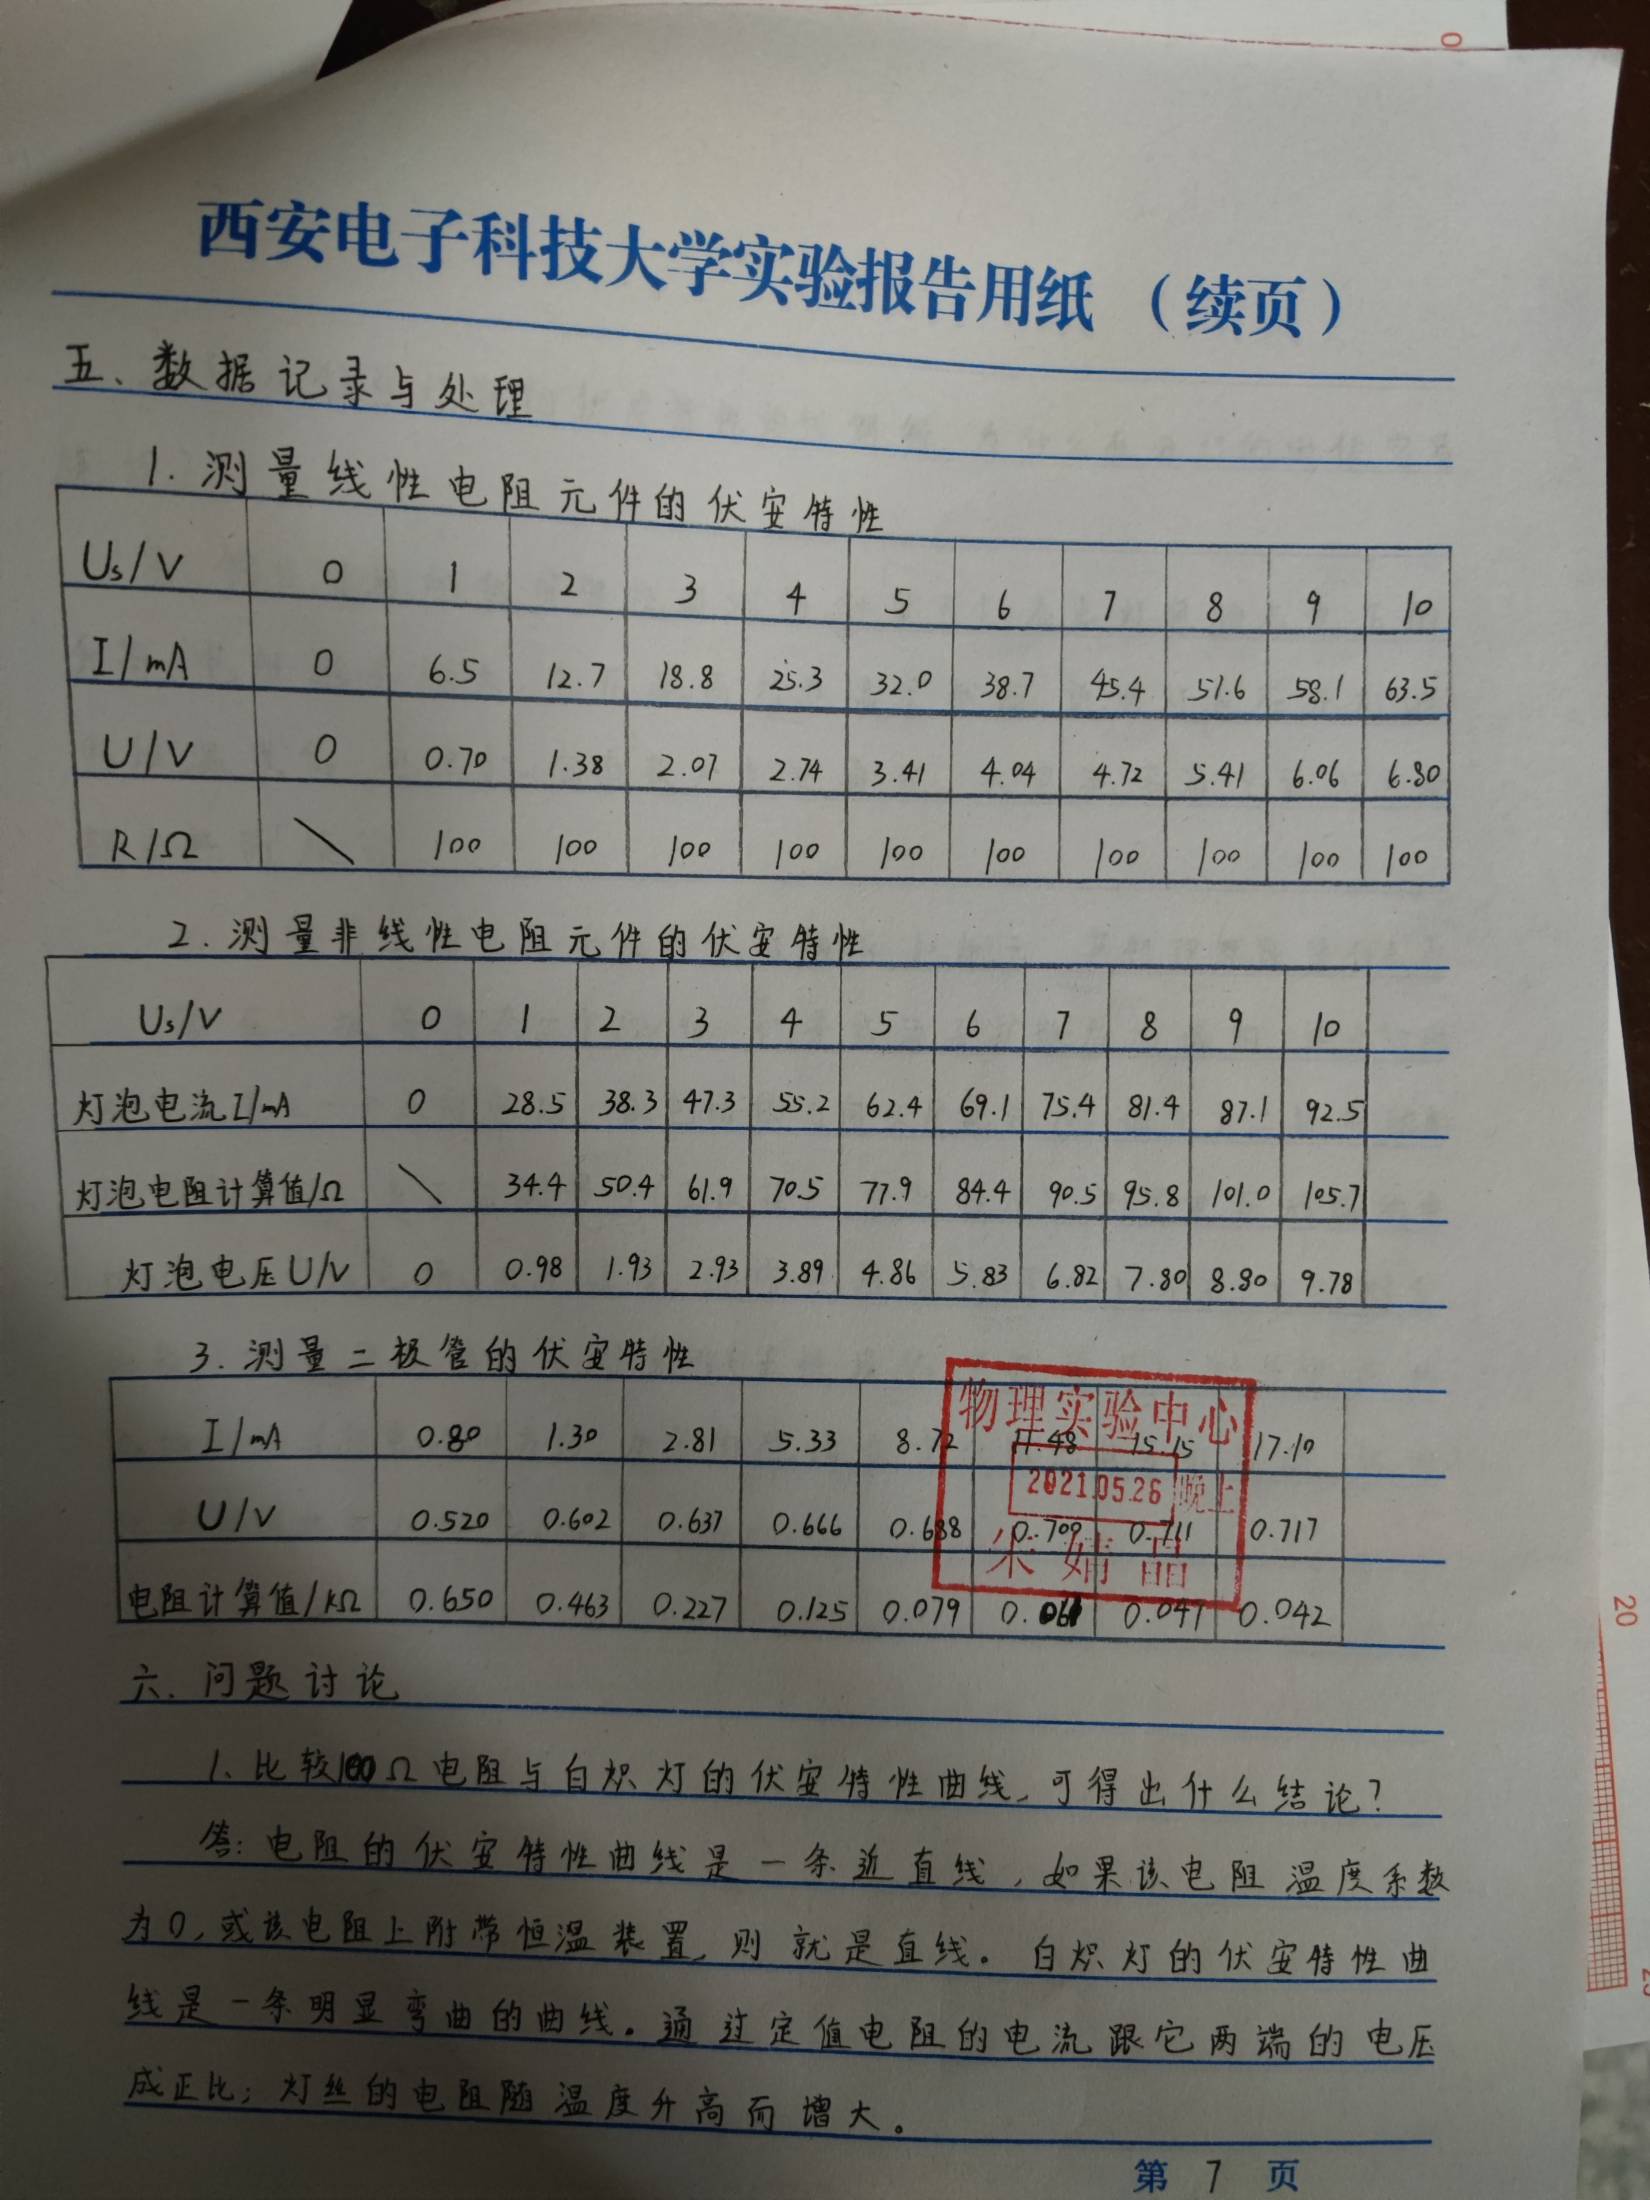 西安电子科技大学实验报告用纸 （续页）
五、数据记录与处理
1. 测量线性电阻元件的伏安特性
Us/V 0 1 2 3 4 5 6 7 8 9 10
I/mA 0 6.5 12.7 18.8 25.3 32.0 38.7 45.4 51.6 58.1 63.5
U/V 0 0.70 1.38 2.07 2.74 3.41 4.04 4.72 5.41 6.06 6.80
R/Ω \ 100 100 100 100 100 100 100 100 100 100
2. 测量非线性电阻元件的伏安特性
Us/V 0 1 2 3 4 5 6 7 8 9 10
灯泡电流I/mA 0 28.5 38.3 47.3 55.2 62.4 69.1 75.4 81.4 87.1 92.5
灯泡电阻计算值/Ω \ 34.4 50.4 61.9 70.5 77.9 84.4 90.5 95.8 101.0 105.7
灯泡电压U/V 0 0.98 1.93 2.93 3.89 4.86 5.83 6.82 7.80 8.80 9.78
3. 测量二极管的伏安特性
物理实验中心
I/mA 0.80 1.30 2.81 5.33 8.72 11.48 15.15 17.10
2021.05.26 晚上
U/V 0.520 0.602 0.637 0.666 0.688 0.709 0.711 0.717
婧
电阻计算值/kΩ 0.650 0.463 0.227 0.125 0.079 0.061 0.047 0.042
六、问题讨论
1、比较100Ω电阻与白炽灯的伏安特性曲线,可得出什么结论?
答:电阻的伏安特性曲线是一条近直线,如果该电阻温度系数
为0,或该电阻上附带恒温装置,则就是直线。白炽灯的伏安特性曲
线是一条明显弯曲的曲线。通过定值电阻的电流跟它两端的电压
成正比;灯丝的电阻随温度升高而增大。
第 7 页
0
20